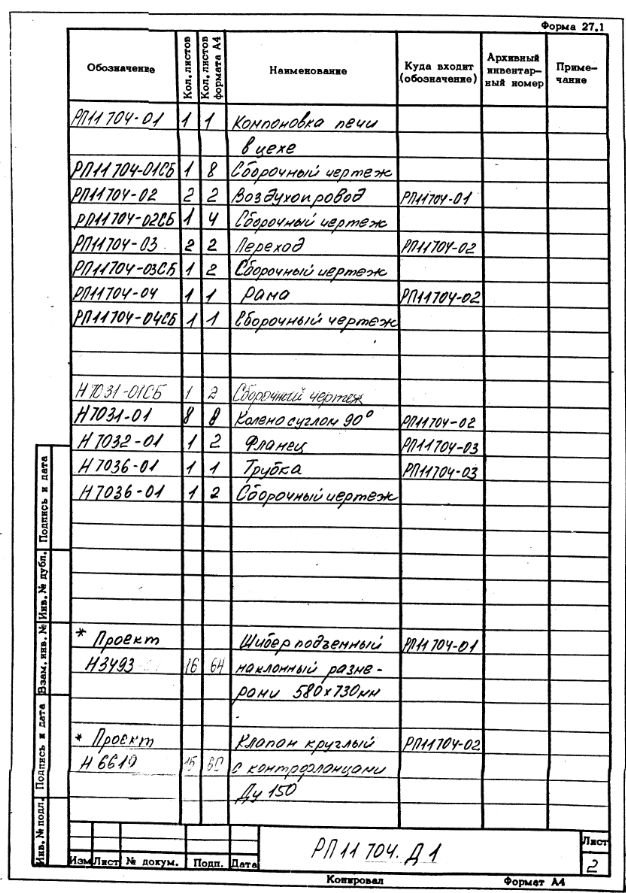 Форма 27.1
Обозначение Кол. листов Кол. листов формата А4 Наименование Куда входит (обозначение) Архивный инвентарный номер Примечание
РП11704-01 1 1 Компоновка печи
в цехе
РП11704-01СБ 1 8 Сборочный чертеж
РП11704-02 2 2 Воздухопровод РП11704-01
РП11704-02СБ 1 4 Сборочный чертеж
РП11704-03 2 2 Переход РП11704-02
РП11704-03СБ 1 2 Сборочный чертеж
РП11704-04 1 1 Рама РП11704-02
РП11704-04СБ 1 1 Сборочный чертеж
Н7031-01СБ 1 2 Сборочный чертеж
Н7031-01 8 8 Колено с углом 90° РП11704-02
Н7032-01 1 2 Фланец РП11704-03
Н7036-01 1 1 Трубка РП11704-03
Н7036-01 1 2 Сборочный чертеж
* Проект Шибер подъемный РП11704-01
Н3493 16 64 наклонный разме-
рами 580х730мм
* Проект Клапан круглый РП11704-02
Н6619 с контрфланцами
Ду 150
Инв. № подл. Подпись и дата Взам. инв. № Инв. № дубл. Подпись и дата
РП11704.Д1
Лист
2
Изм Лист № докум. Подп. Дата
Копировал Формат А4